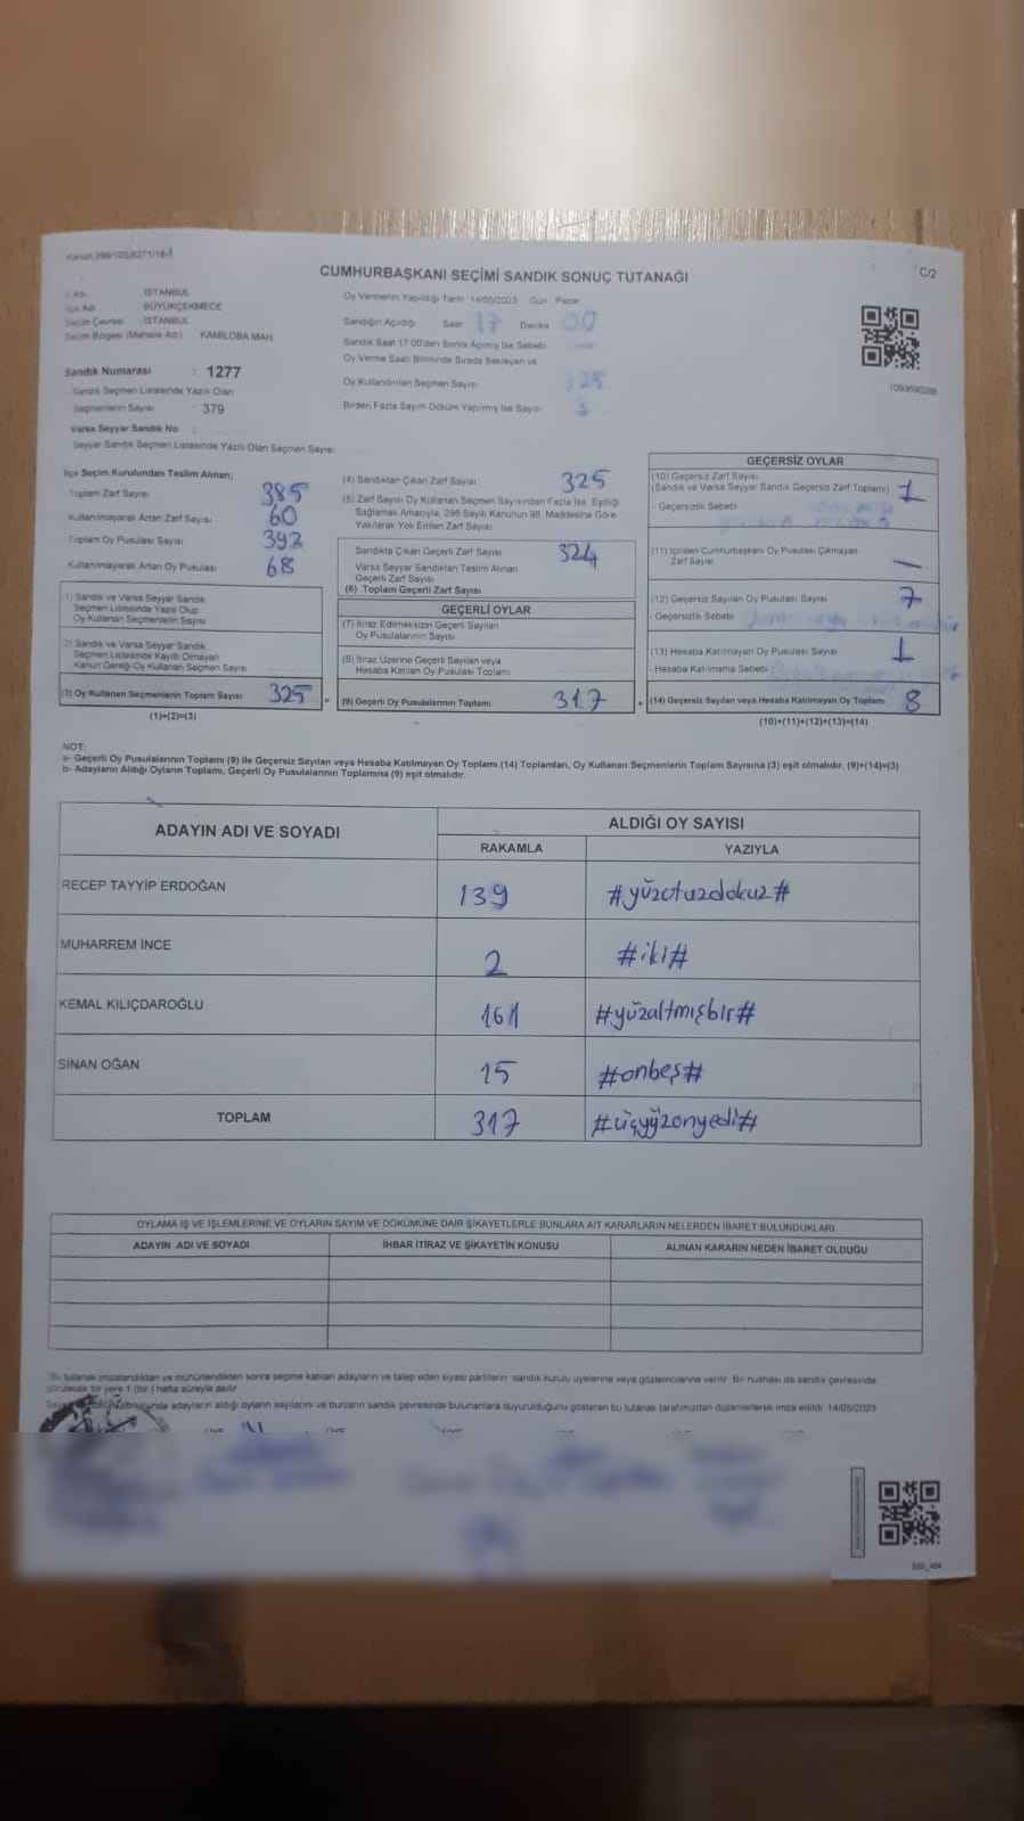 CUMHURBAŞKANI SEÇİMİ SANDIK SONUÇ TUTANAĞI
C/2
İSTANBUL
BÜYÜKÇEKMECE
Seçim Çevresi İSTANBUL
Seçim Bölgesi (Mahalle Adı) KAMİLOBA MAH.
Sandık Numarası : 1277
Sandık Seçmen Listesinde Yazılı Olan
Seçmenlerin Sayısı 379
Varsa Seyyar Sandık No :
Seyyar Sandık Seçmen Listesinde Yazılı Olan Seçmen Sayısı
Oy Vermenin Yapıldığı Tarih 14/05/2023 Gün Pazar
Sandığın Açıldığı Saat 17 Dakika 00
Sandık Saat 17.00'den Sonra Açılmış İse Sebebi
Oy Verme Saati Bitiminde Sırada Bekleyen ve
Oy Kullandırılan Seçmen Sayısı
Birden Fazla Sayım Döküm Yapılmış İse Sayısı
İlçe Seçim Kurulundan Teslim Alınan;
Toplam Zarf Sayısı 385
Kullanılmayarak Artan Zarf Sayısı 60
Toplam Oy Pusulası Sayısı 392
Kullanılmayarak Artan Oy Pusulası 68
1) Sandık ve Varsa Seyyar Sandık
Seçmen Listesinde Yazılı Olup
Oy Kullanan Seçmenlerin Sayısı
2) Sandık ve Varsa Seyyar Sandık
Seçmen Listesinde Kayıtlı Olmayan
Kanun Gereği Oy Kullanan Seçmen Sayısı
(3) Oy Kullanan Seçmenlerin Toplam Sayısı 325
(1)+(2)=(3)
(4) Sandıktan Çıkan Zarf Sayısı 325
(5) Zarf Sayısı Oy Kullanan Seçmen Sayısından Fazla İse, Eşitliği
Sağlamak Amacıyla, 298 Sayılı Kanunun 98. Maddesine Göre
Yakılarak Yok Edilen Zarf Sayısı
Sandıkta Çıkan Geçerli Zarf Sayısı 324
Varsa Seyyar Sandıktan Teslim Alınan
Geçerli Zarf Sayısı
(6) Toplam Geçerli Zarf Sayısı
GEÇERLİ OYLAR
(7) İtiraz Edilmeksizin Geçerli Sayılan
Oy Pusulalarının Sayısı
(8) İtiraz Üzerine Geçerli Sayılan veya
Hesaba Katılan Oy Pusulası Toplamı
(9) Geçerli Oy Pusulalarının Toplamı 317
GEÇERSİZ OYLAR
(10) Geçersiz Zarf Sayısı
(Sandık ve Varsa Seyyar Sandık Geçersiz Zarf Toplamı) 1
- Geçersizlik Sebebi
(11) İçinden Cumhurbaşkanı Oy Pusulası Çıkmayan
Zarf Sayısı —
(12) Geçersiz Sayılan Oy Pusulası Sayısı 7
- Geçersizlik Sebebi
(13) Hesaba Katılmayan Oy Pusulası Sayısı 1
- Hesaba Katılmama Sebebi
(14) Geçersiz Sayılan veya Hesaba Katılmayan Oy Toplamı 8
(10)+(11)+(12)+(13)=(14)
NOT:
a- Geçerli Oy Pusulalarının Toplamı (9) ile Geçersiz Sayılan veya Hesaba Katılmayan Oy Toplamı (14) Toplamları, Oy Kullanan Seçmenlerin Toplam Sayısına (3) eşit olmalıdır. (9)+(14)=(3)
b- Adayların Aldığı Oyların Toplamı, Geçerli Oy Pusulalarının Toplamına (9) eşit olmalıdır.
ADAYIN ADI VE SOYADI ALDIĞI OY SAYISI
RAKAMLA YAZIYLA
RECEP TAYYİP ERDOĞAN 139 #yüzotuzdokuz#
MUHARREM İNCE 2 #iki#
KEMAL KILIÇDAROĞLU 161 #yüzaltmışbir#
SİNAN OĞAN 15 #onbeş#
TOPLAM 317 #üçyüzonyedi#
OYLAMA İŞ VE İŞLEMLERİNE VE OYLARIN SAYIM VE DÖKÜMÜNE DAİR ŞİKAYETLERLE BUNLARA AİT KARARLARIN NELERDEN İBARET BULUNDUKLARI
ADAYIN ADI VE SOYADI İHBAR İTİRAZ VE ŞİKAYETİN KONUSU ALINAN KARARIN NEDEN İBARET OLDUĞU
Bu tutanak imzalandıktan ve mühürlendikten sonra seçime katılan adayların ve talep eden siyasi partilerin sandık kurulu üyelerine veya gözlemcilerine verilir. Bir nüshası da sandık çevresinde
görülecek bir yere 1 (bir) hafta süreyle asılır.
adayların aldığı oyların sayılarını ve bunların sandık çevresinde bulunanlara duyurulduğunu gösteren bu tutanak tarafımızdan düzenlenerek imza edildi. 14/05/2023